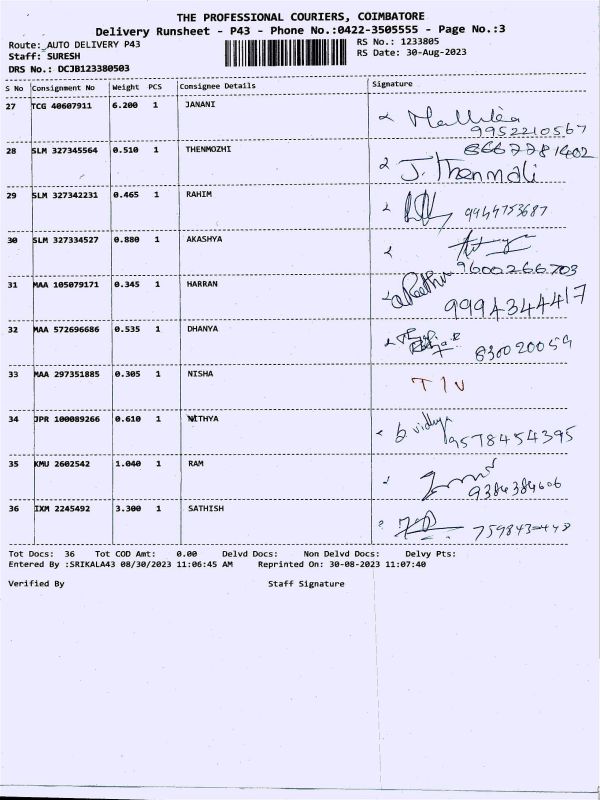 THE PROFESSIONAL COURIERS, COIMBATORE
Delivery Runsheet - P43 - Phone No.:0422-3505555 - Page No.:3
Route: AUTO DELIVERY P43 RS No.: 1233805
Staff: SURESH RS Date: 30-Aug-2023
DRS No.: DCJB123380503
S No Consignment No Weight PCS Consignee Details Signature
27 TCG 40607911 6.200 1 JANANI
9952210567
28 SLM 327345564 0.510 1 THENMOZHI 8667781402
J. Thenmoli
29 SLM 327342231 0.465 1 RAHIM 9944753687
30 SLM 327334527 0.880 1 AKASHYA
9600266703
31 MAA 105079171 0.345 1 HARRAN
9994344417
32 MAA 572696686 0.535 1 DHANYA
630020059
33 MAA 297351885 0.305 1 NISHA T I V
34 JPR 100089266 0.610 1 NITHYA
vidhya 9578454395
35 KMU 2602542 1.040 1 RAM
9384384606
36 IXM 2245492 3.300 1 SATHISH
Tot Docs: 36 Tot COD Amt: 0.00 Delvd Docs: Non Delvd Docs: Delvy Pts:
Entered By :SRIKALA43 08/30/2023 11:06:45 AM Reprinted On: 30-08-2023 11:07:40
Verified By Staff Signature